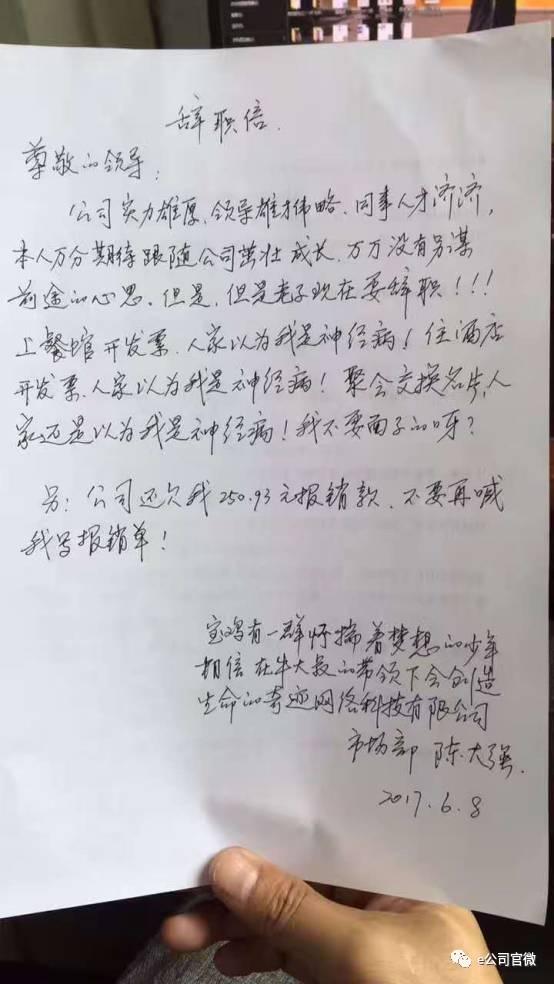 辞职信.
尊敬的领导:
公司实力雄厚、领导雄才伟略、同事人才济济,
本人万分期待跟随公司茁壮成长,万万没有另谋
前途的心思。但是,但是老子现在要辞职!!!
上餐馆开发票、人家以为我是神经病!住酒店
开发票、人家以为我是神经病!聚会交换名片,人
家还是以为我是神经病!我不要面子的呀?
另:公司还欠我250.93元报销款、不要再喊
我写报销单!
宝鸡有一群怀揣着梦想的少年
相信在牛大叔的带领下会创造
生命的奇迹网络科技有限公司
市场部 陈大强.
2017.6.8
e公司官微